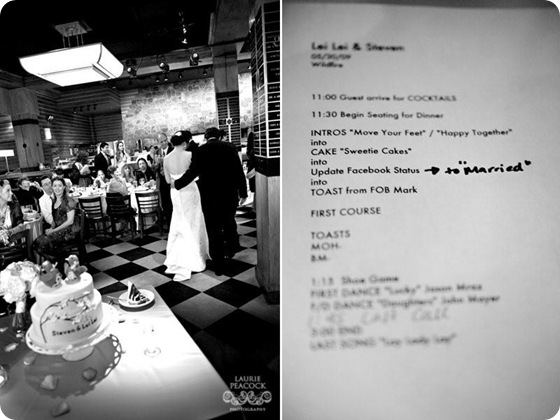 Steven & Lei Lei
LAURIE
PEACOCK
PHOTOGRAPHY
Lei Lei & Steven
05/30/09
Wildfire
11:00 Guest arrive for COCKTAILS
11:30 Begin Seating for Dinner
INTROS "Move Your Feet" / "Happy Together"
into
CAKE "Sweetie Cakes"
into
Update Facebook Status → to "Married"
into
TOAST from FOB Mark
FIRST COURSE
TOASTS
MOH-
B.M-
1:15 Shoe Game
FIRST DANCE "Lucky" Jason Mraz
F/D DANCE "Daughters" John Mayer
Last Call
3:00 END
LAST SONG "Lay Lady Lay"